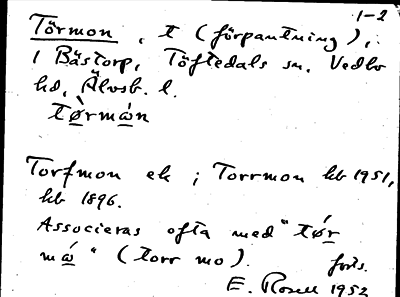 1-2
Törmon, t (förpantning),
i Bästorp, Töftedals sn, Vedbo
hd, Älvsb. l.
tø̀rmὼn
Torfmon ek ; Torrmon kb 1951,
kb 1896.
Associeras ofta med "tø̀r
mώ" (torr mo).
forts.
E. Rosell 1952